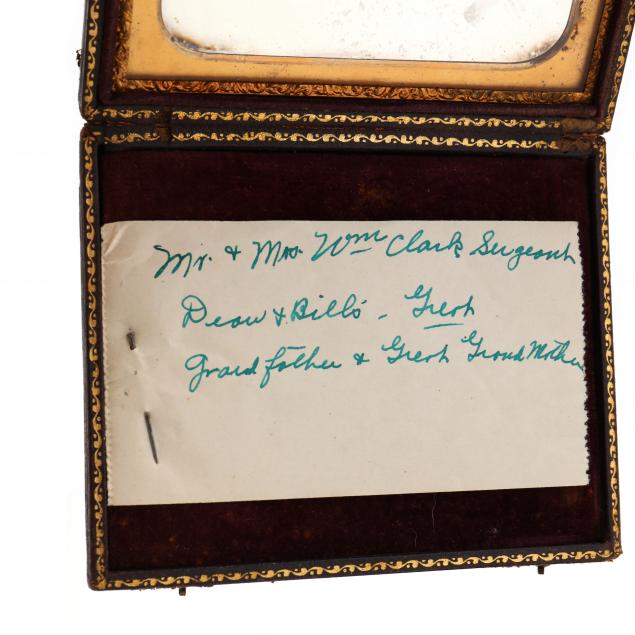 Mr. & Mrs. Wm Clark Sergeant
Dean & Bill's - Great
Grand father & Great Grand Mother